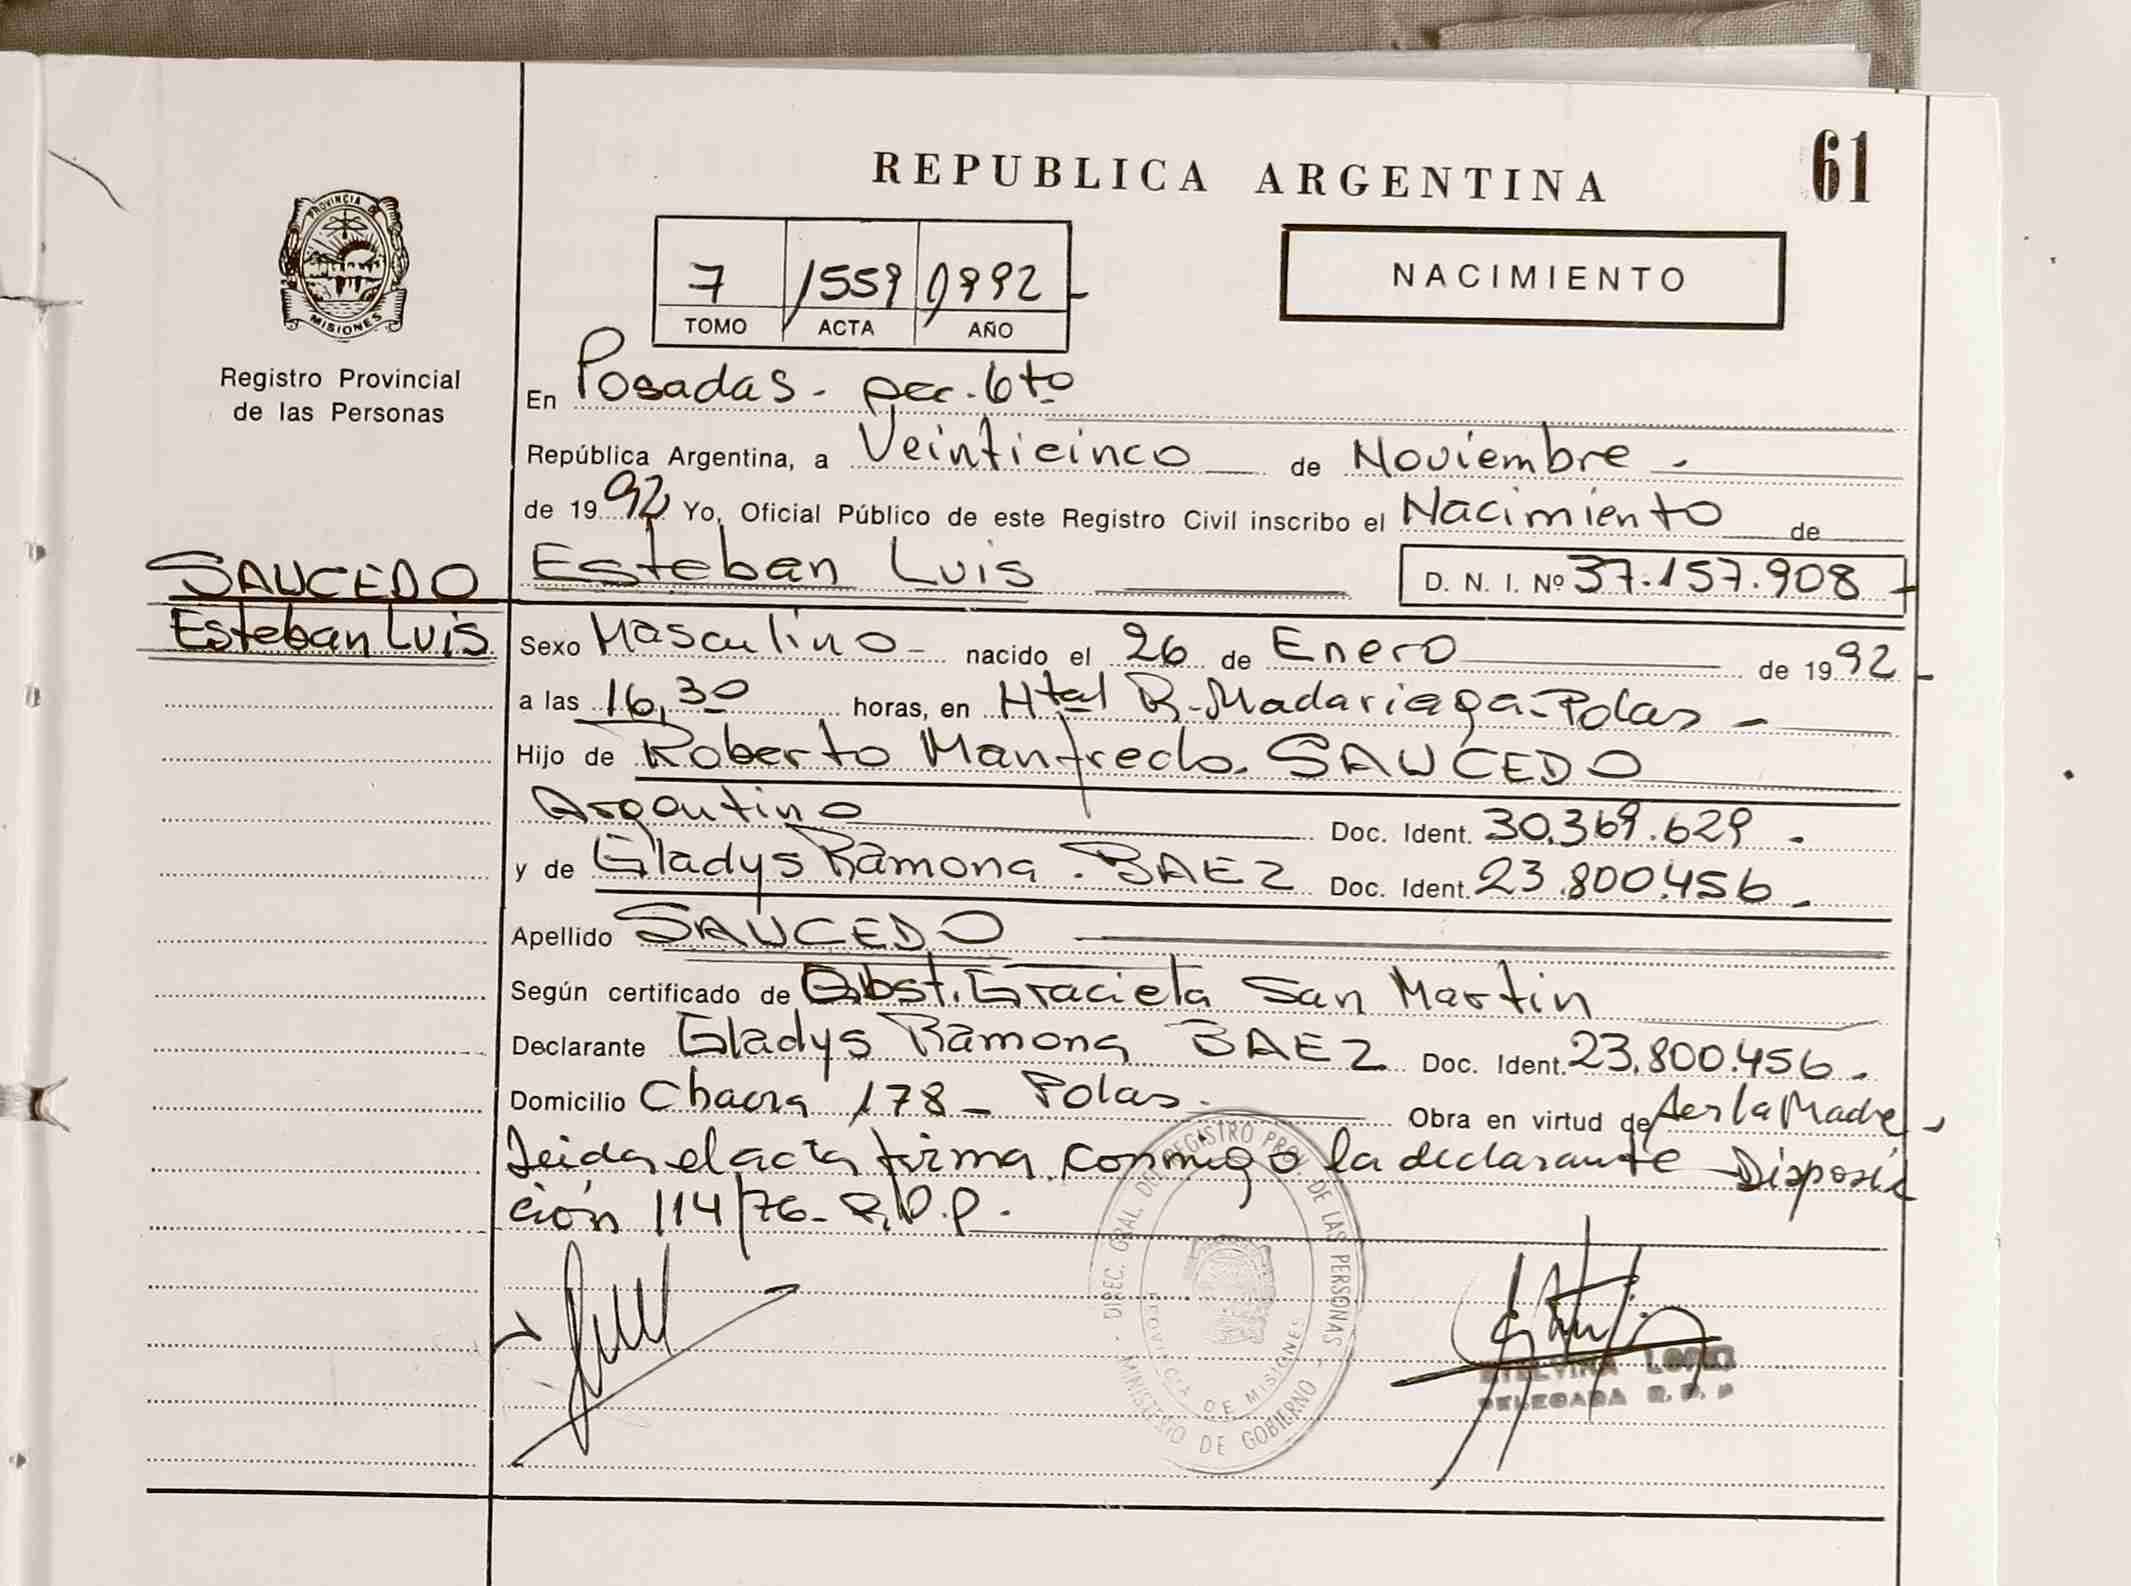 REPUBLICA ARGENTINA
61
PROVINCIA DE
MISIONES
Registro Provincial
de las Personas
7 1559 1992
TOMO ACTA AÑO
NACIMIENTO
En Posadas - sec. 6to
República Argentina, a Veinticinco de Noviembre -
de 1992 Yo, Oficial Público de este Registro Civil inscribo el Nacimiento de
SAUCEDO
Esteban Luis
Esteban Luis D. N. I. Nº 37.157.908
Sexo Masculino - nacido el 26 de Enero de 1992
a las 16,30 horas, en Htal R. Madariaga - Pdas -
Hijo de Roberto Manfredo SAUCEDO
Argentino Doc. Ident. 30.369.629 -
y de Gladys Ramona BAEZ Doc. Ident. 23.800.456 -
Apellido SAUCEDO
Según certificado de Obst. Graciela San Martin
Declarante Gladys Ramona BAEZ Doc. Ident. 23.800.456 -
Domicilio Chacra 178 - Pdas - Obra en virtud de ser la Madre -
Leida el acta firma conmigo la declarante Disposi
ción 114/76 - R.P.P.
DIREC. GRAL. DEL REGISTRO PROV. DE LAS PERSONAS
MINISTERIO DE GOBIERNO
PROVINCIA DE MISIONES
ETELVINA LOPEZ
DELEGADA R. P. P